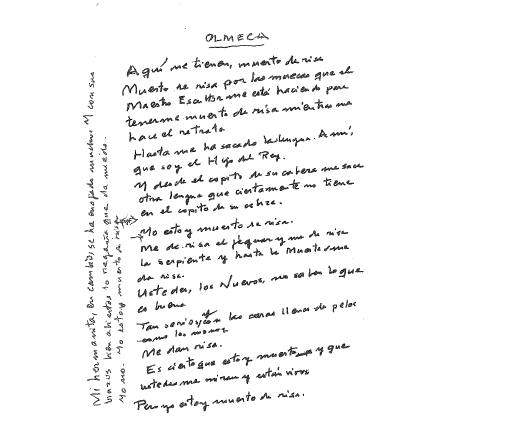 OLMECA
Aquí me tienen, muerto de risa
Muerto de risa por las muecas que el
Maestro Escultor me está haciendo para
tenerme muerto de risa mientras me
hace el retrato
Hasta me ha sacado la lengua. A mí,
que soy el Hijo del Rey.
Y desde el copito de su cabeza me saca
otra lengua que ciertamente no tiene
en el copito de su cabeza.
Yo estoy muerto de risa.
Me da risa el jaguar y me da risa
la serpiente y hasta la Muerte me
da risa.
Ustedes, los Nuevos, no saben lo que
es bueno
Tan serios y con las caras llenas de pelos
como los monos
Me dan risa.
Es cierto que estoy muerto y que
ustedes me miran y están vivos
Pero yo estoy muerto de risa.
Mi hermanita, en cambio, se ha enojado mucho y con sus
brazos bien abiertos lo regaña que da miedo.
Yo no. Yo estoy muerto de risa